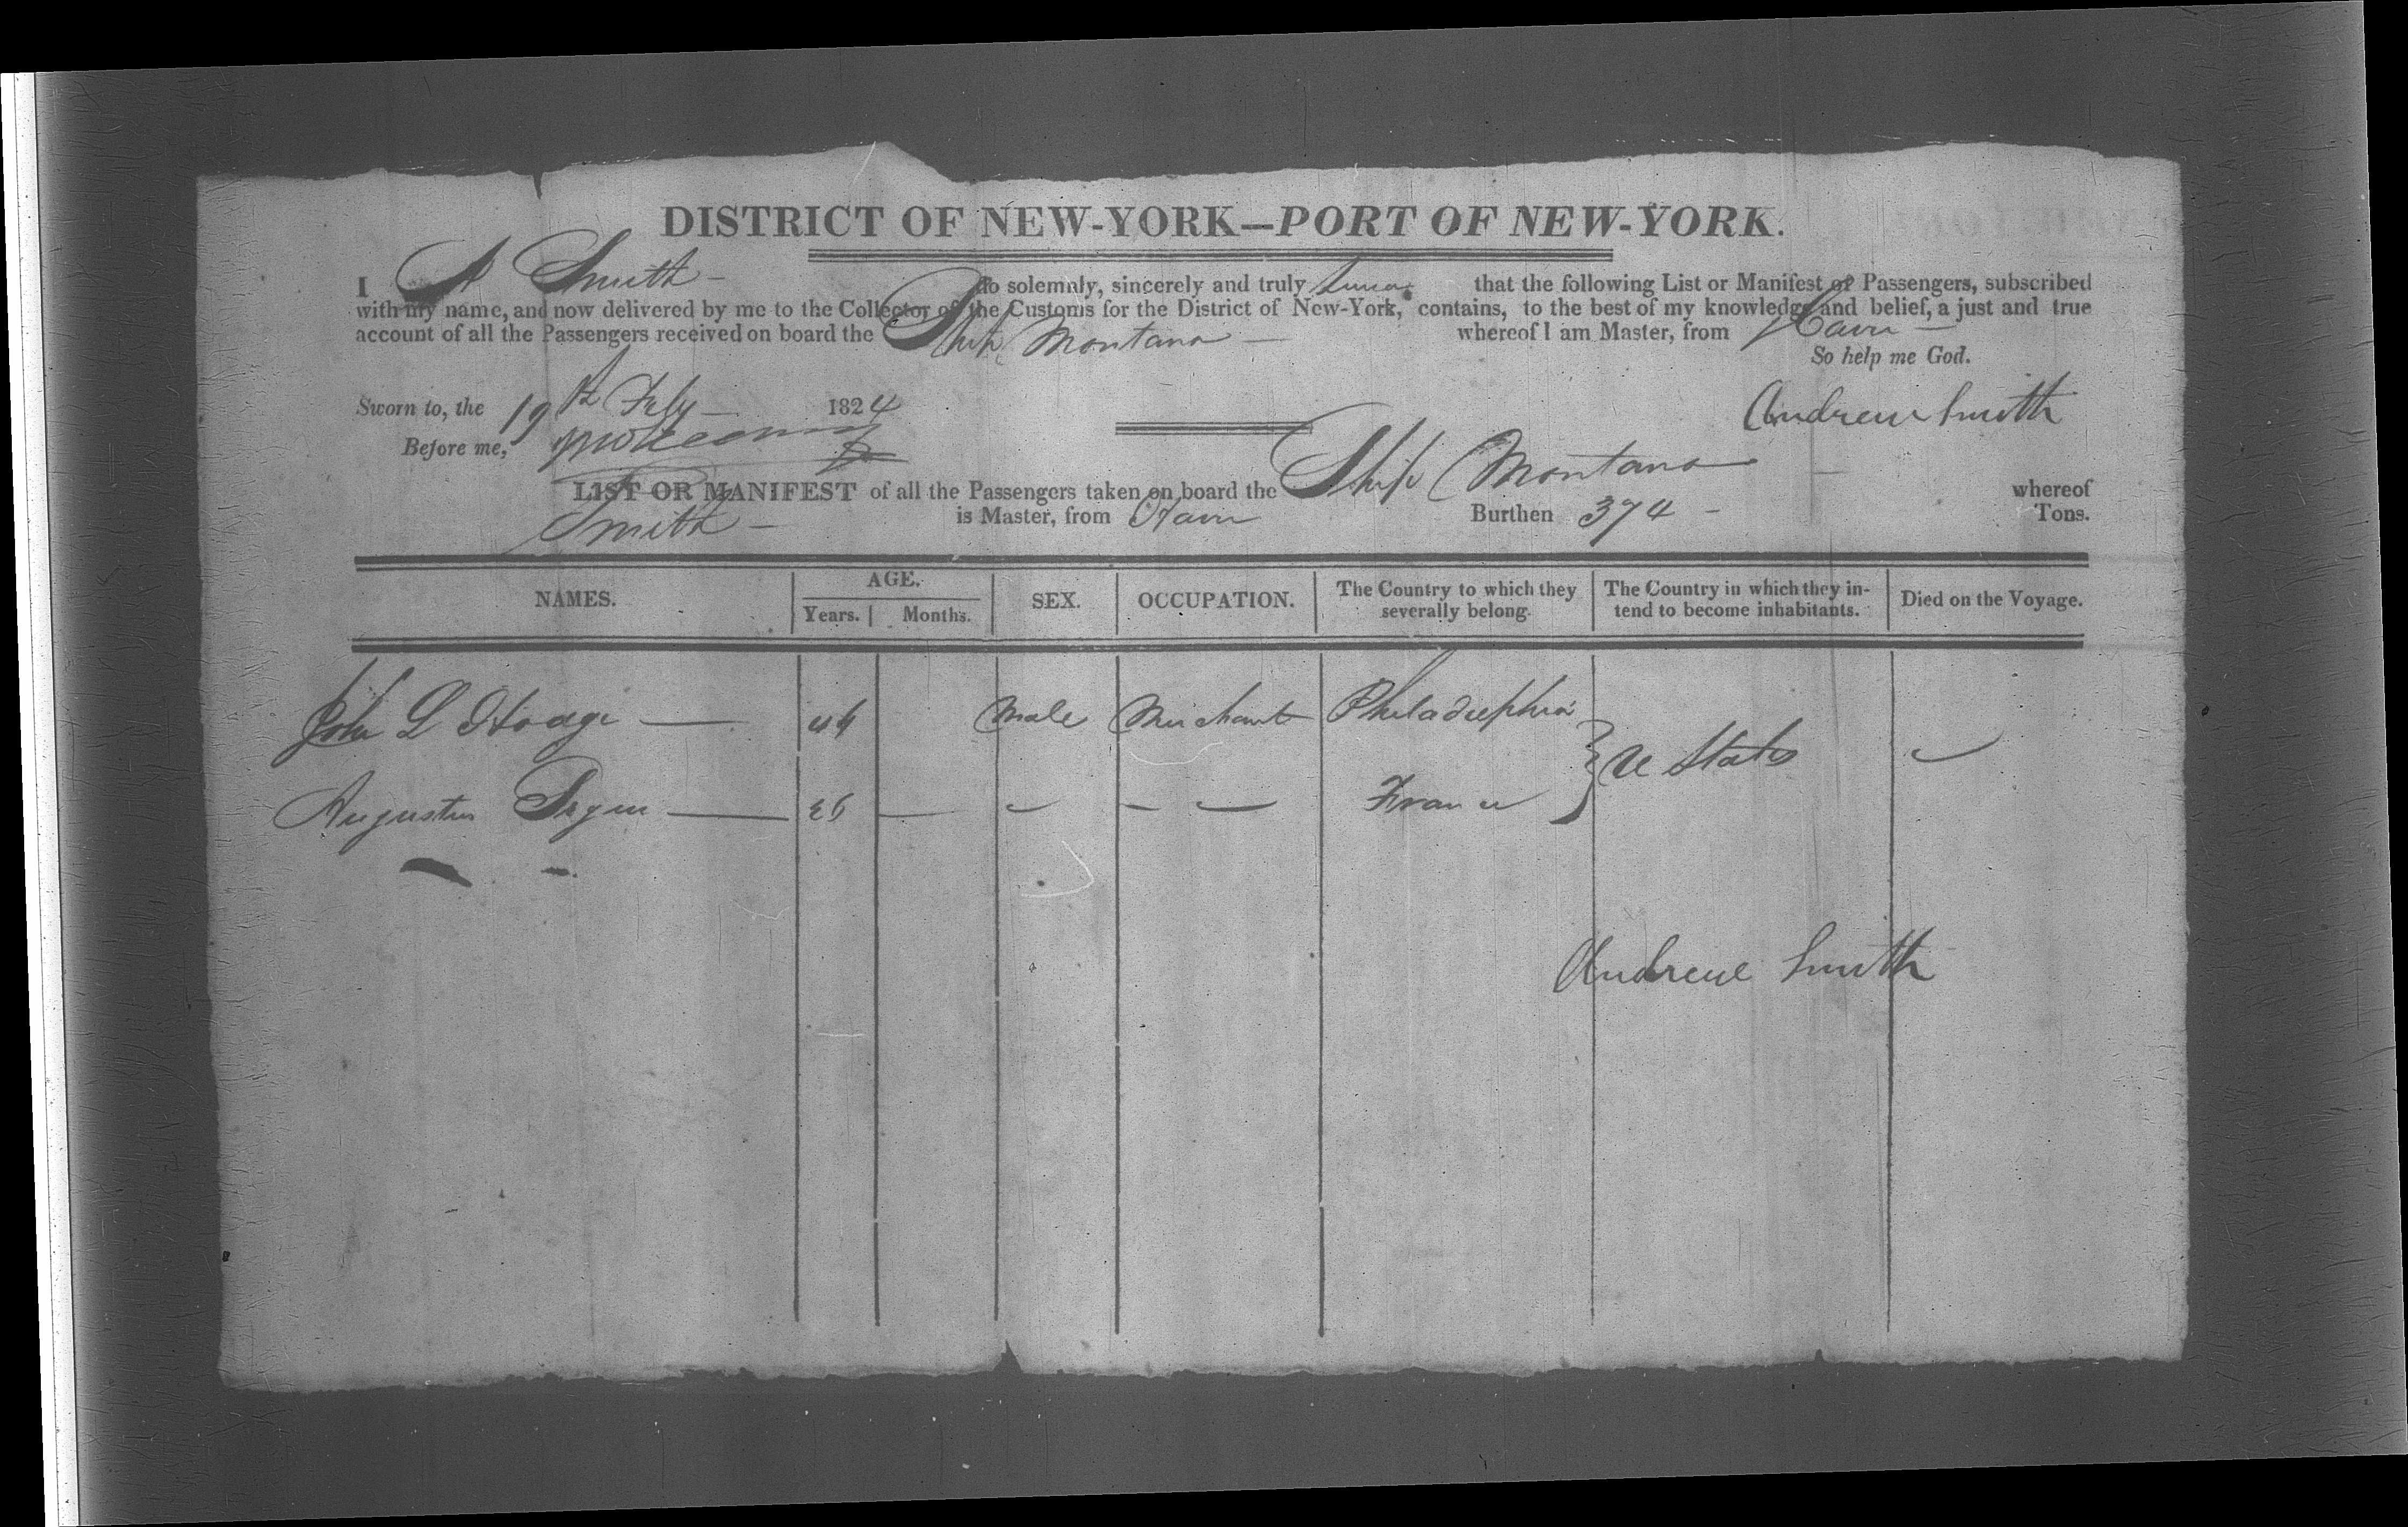 DISTRICT OF NEW-YORK—PORT OF NEW-YORK.
I A Smith do solemnly, sincerely and truly swear that the following List or Manifest of Passengers, subscribed
with my name, and now delivered by me to the Collector of the Customs for the District of New-York, contains, to the best of my knowledge and belief, a just and true
account of all the Passengers received on board the Ship Montano whereof I am Master, from Havre
So help me God.
Sworn to, the 19th July 1824
Andrew Smith
Before me,
LIST OR MANIFEST of all the Passengers taken on board the Ship Montano whereof
Smith is Master, from Havre Burthen 374 Tons.
NAMES. AGE. SEX. OCCUPATION. The Country to which they severally belong. The Country in which they intend to become inhabitants. Died on the Voyage.
Years. Months.
John L Hodge 44 Male Merchant Philadelphia
U States
Augustus 26 France
Andrew Smith